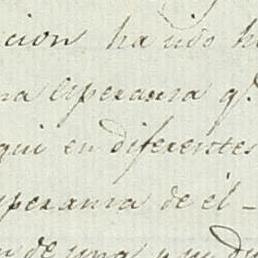 cion ha sido h
na esperanza q.
qui en diferentes
speranza de él -
de una y un Du